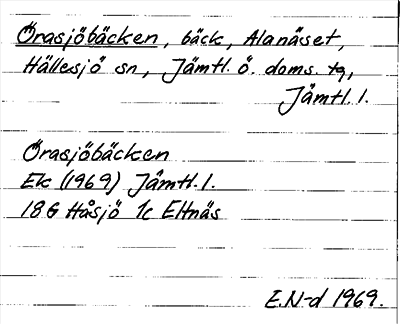 Örasjöbäcken, bäck, Alanäset,
Hällesjö sn, Jämtl. ö. doms. tg,
Jämtl. l.
Örasjöbäcken
Ek (1969) Jämtl. l.
18G Håsjö 1c Eltnäs
E.N-d 1969.